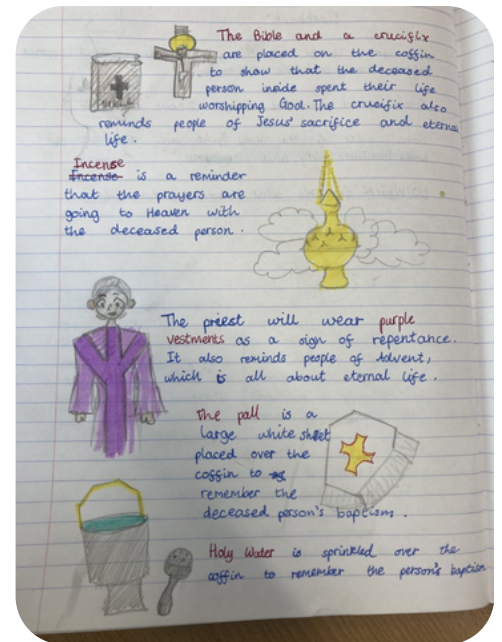 The Bible and a crucifix
are placed on the coffin
to show that the deceased
person inside spent their life
worshipping God. The crucifix also
reminds people of Jesus' sacrifice and eternal
life.
Incense
Incense is a reminder
that the prayers are
going to Heaven with
the deceased person.
The priest will wear purple
vestments as a sign of repentance.
It also reminds people of Advent,
which is all about eternal life.
The pall is a
large white sheet
placed over the
coffin to
remember the
deceased person's baptism.
Holy Water is sprinkled over the
coffin to remember the person's baptism